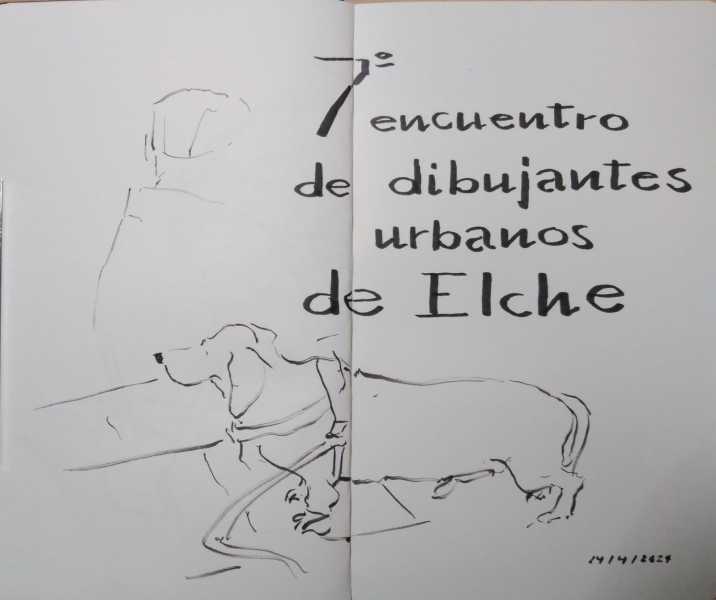 7º
encuentro
de dibujantes
urbanos
de Elche
14/4/2024